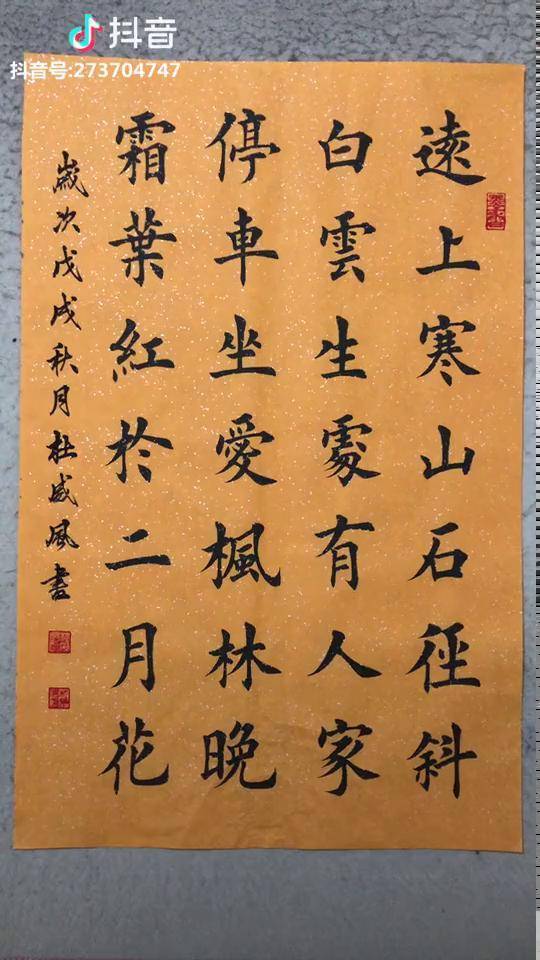 抖音
抖音号:273704747
遠上寒山石徑斜
白雲生處有人家
停車坐愛楓林晚
霜葉紅於二月花
歲次戊戌秋月杜威風書